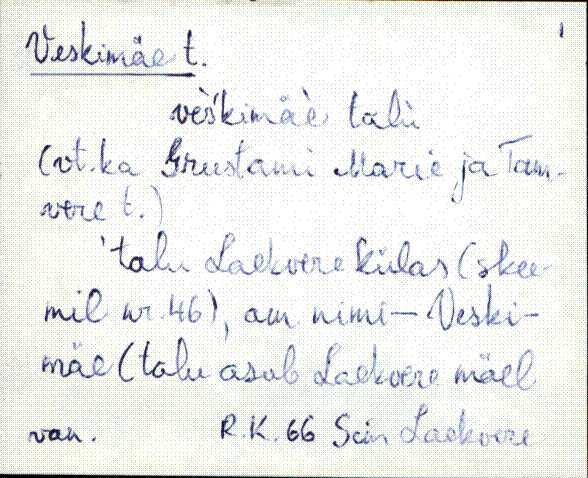 Veskimäe t.
vèśkimäè talù
(vt. ka Grustami Marie ja Tam-
vere t.)
'talu Laekvere külas (skee-
mil nr. 46), am nimi – Veski-
mäe (talu asub Laekvere mäel
van. R.K. 66 Sim Laekvere